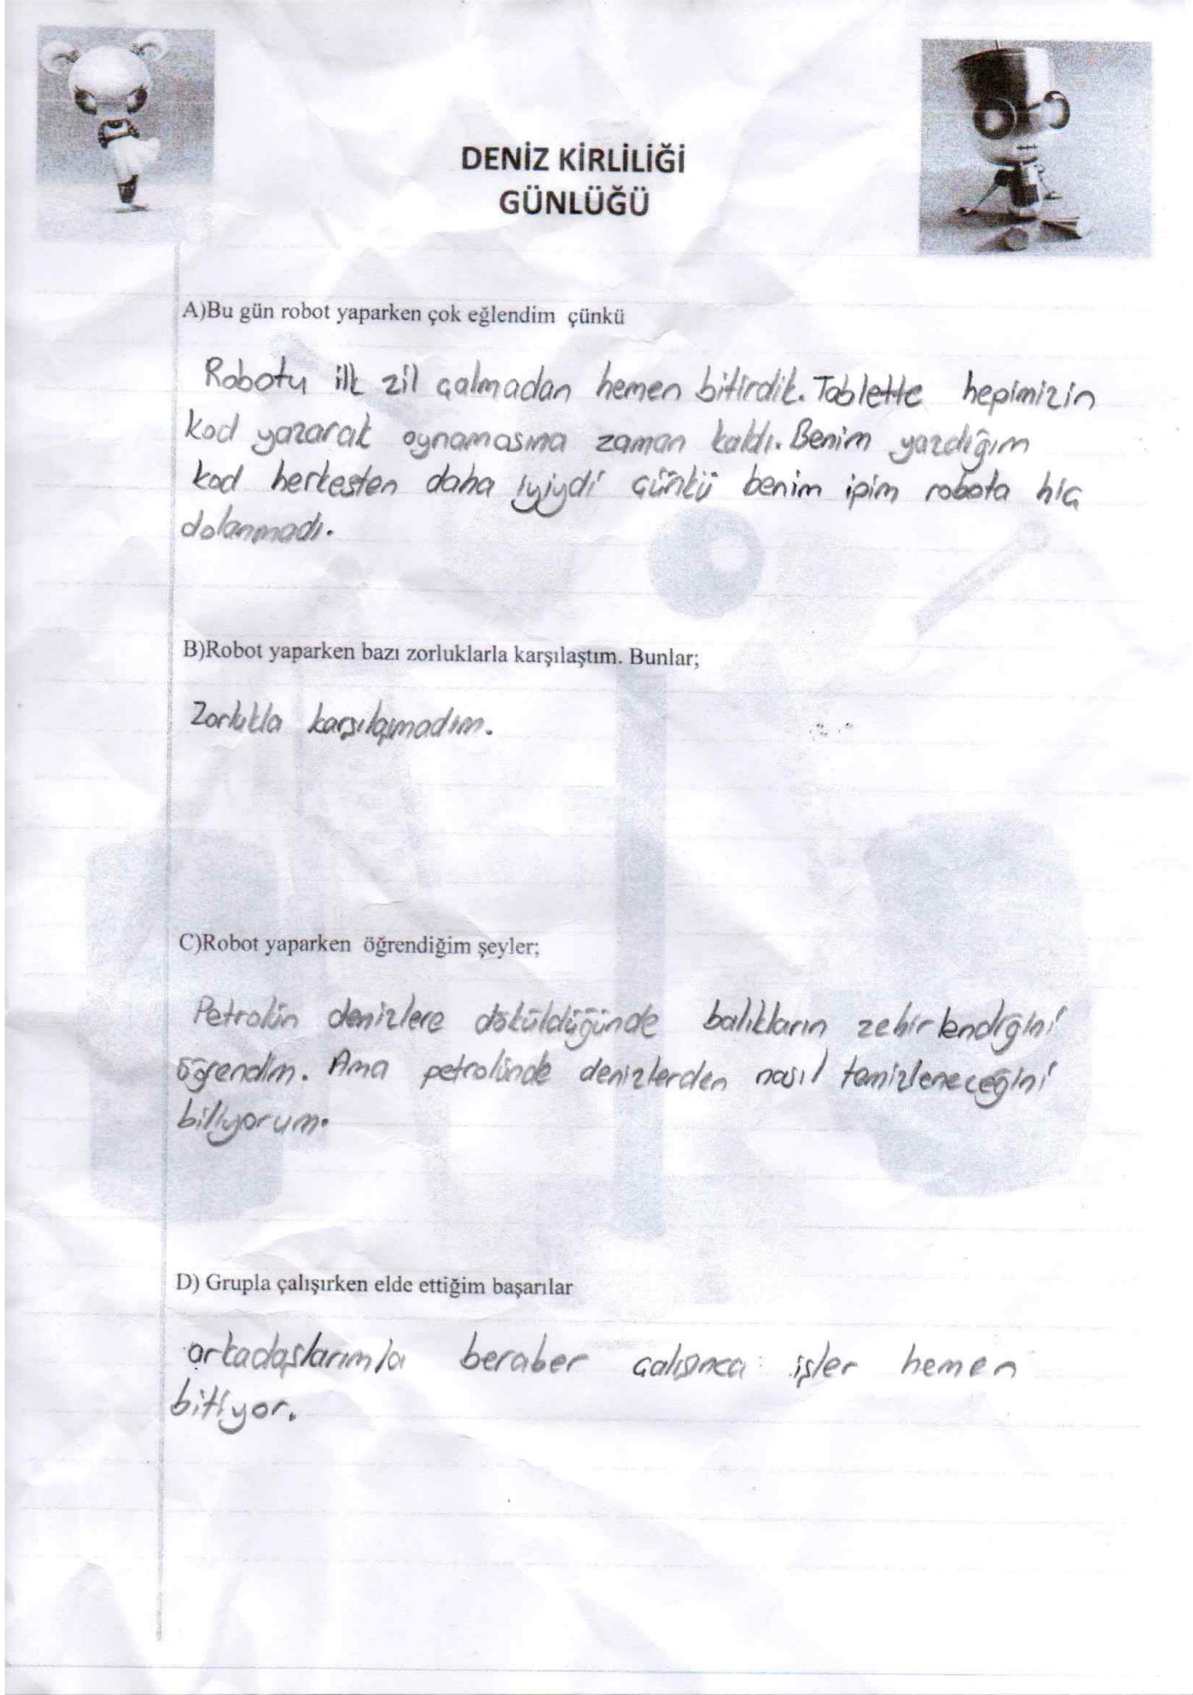 DENİZ KİRLİLİĞİ
GÜNLÜĞÜ
A)Bu gün robot yaparken çok eğlendim çünkü
Robotu ilk zil çalmadan hemen bitirdik. Tablette hepimizin
kod yazarak oynamasına zaman kaldı. Benim yazdığım
kod herkesten daha iyiydi çünkü benim ipim robota hiç
dolanmadı.
B)Robot yaparken bazı zorluklarla karşılaştım. Bunlar;
Zorlukla karşılaşmadım.
C)Robot yaparken öğrendiğim şeyler;
Petrolün denizlere döküldüğünde balıkların zehirlendiğini
öğrendim. Ama petrolünde denizlerden nasıl temizleneceğini
biliyorum.
D) Grupla çalışırken elde ettiğim başarılar
arkadaşlarımla beraber çalışınca işler hemen
bitiyor.